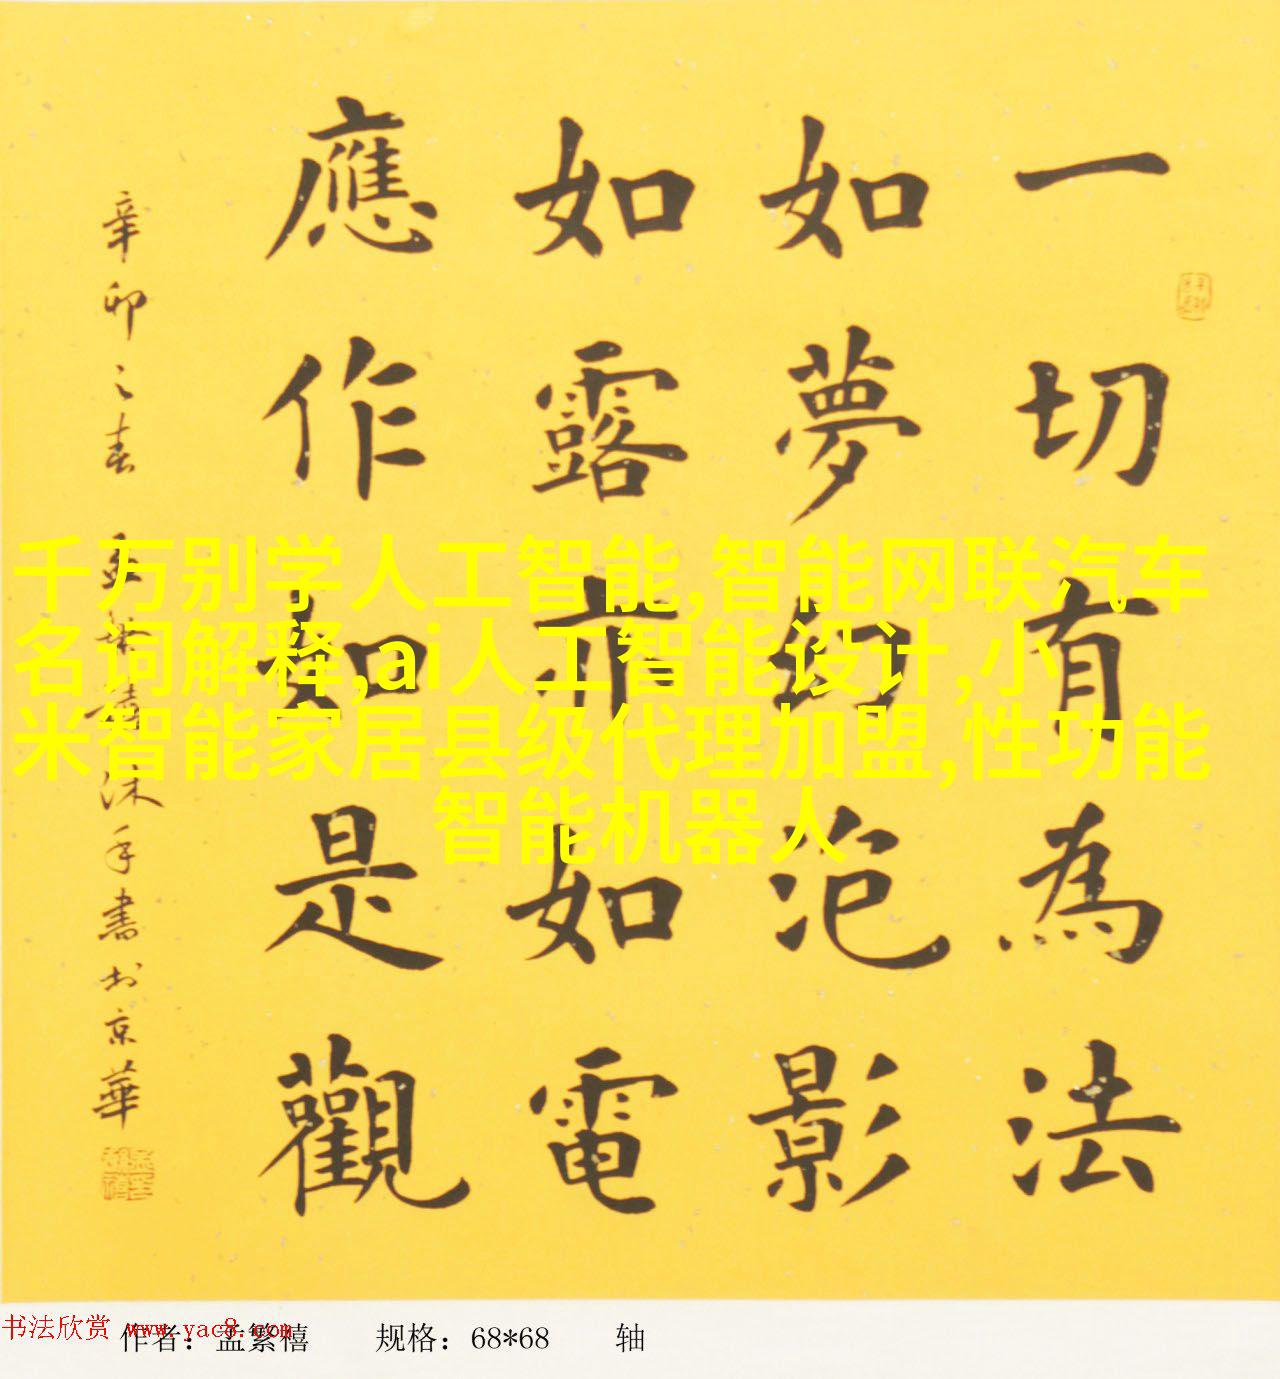 一切有為法
如夢幻泡影
如露亦如電
應作如是觀
辛卯之春孟繁禧沐手書於京華
千万别学人工智能,智能网联汽车
名词解释,ai人工智能设计,小
米智能家居县级代理加盟,性功能
智能机器人
书法欣赏 www.yac8.com
作者：孟繁禧 规格：68*68 轴